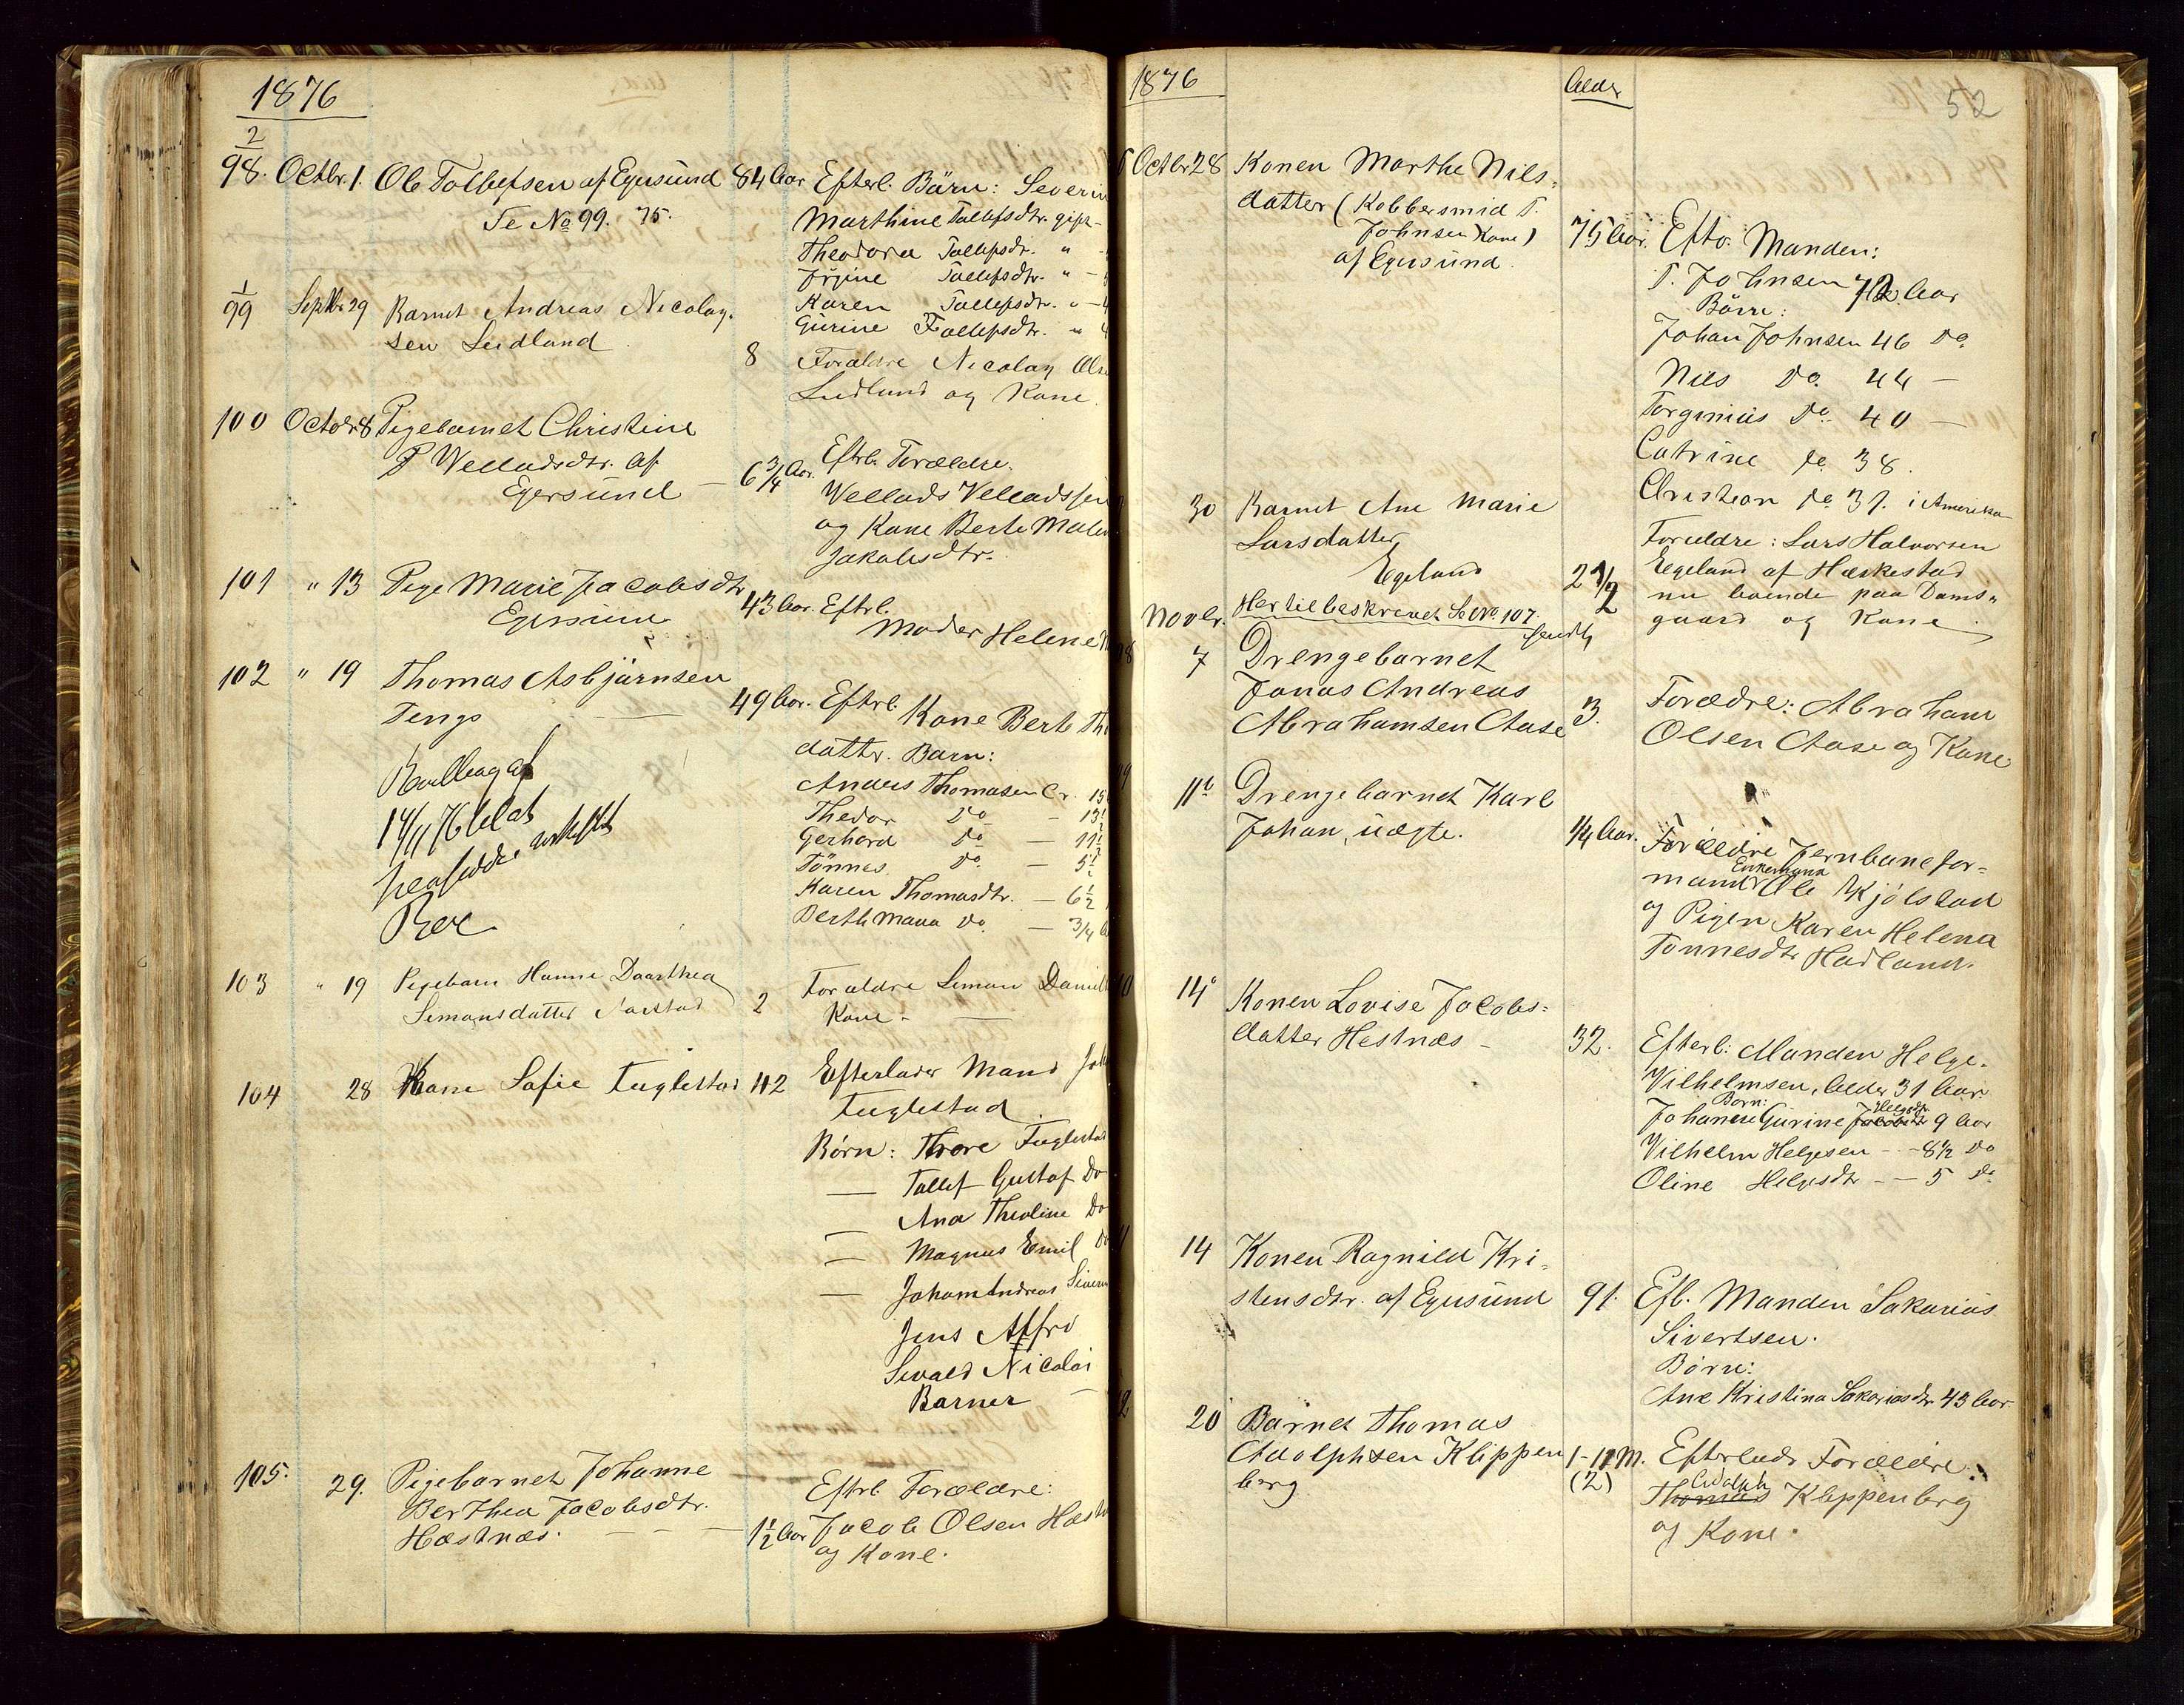 1876
2
98. Octbr. 1. Ole Tollefsen af Egersund 84 Aar Efterl. Börn: Severin
Se No 99. 75. Marthine Tollefsdtr. gift
Theodora Tollefsdr. "
Tollefsdtr. "
Karen Tollefsdr. "
Gurine Tollefsdtr. "
1
99 Septbr. 29 Barnet Andreas Nicolay-
sen Leidland
8 Forældre Nicolay Ols
Leidland og Kone
100 Octobr 8 Pigebarnet Christine
Welladsdtr. af
Egersund — 6 3/4 Aar. Eftrl. Forældre.
Wellads Velladssen
og Kone Berte Malen
Jakobsdtr.
101 " 13 Pige Marie Jacobsdtr
Egersund 43 Aar. Eftrl.
Moder Helene
102 " 19 Thomas Asbjörnsen
Tengs — 49 Aar. Eftrl. Kone Berte Th
dattr. Barn:
Anders Thomasen Er. 15
Thedor Do — 13
Gerhard Do — 11
Tönnes Do. — 5
Karen Thomasdtr. — 6½
Berth Maria Do. — 3/4
14/11 76
103 " 19 Pigebarn Hanne Daarthea
Simonsdatter 2 Forældre Simon Daniel
Kone —
104 28 Kone Sofie Fuglestad 42 Efterlader Mand
Fuglestad.
Börn: Thore Fuglestad
— Tollef Gustaf Do
— Ana Theoline Do
— Magnus Emil Do
— Johan Andreas Siver
Jens Alfr
Sivald Nicolai
Barner —
105. 29. Pigebarnet Johanne
Berthea Jacobsdtr.
Hæstnæs. — — — 1½ Aar Eftrl. Forældre:
Jacob Olsen Hæstn
og Kone.
1876 Alder 52
Octbr 28 Konen Marthe Nils-
datter (Kobbersmid T.
Johnsen Kone)
af Egersund. 75 Aar. Eftr. Manden:
T. Johnsen 72 Aar
Börn:
Johan Johnsen 46 Do.
Nils Do. 44 —
Torginius Do. 40 —
Catrine Do. 38.
Christian Do. 31. i Amerika
30 Barnet Ane Marie
Larsdatter
Egeland 2 1/2 Forældre: Lars Halvorsen
Egeland af Hæskestad
nu boende paa Dams-
gaard og Kone.
Novbr. Hertil beskrevet Se No. 107.
7 Drengebarnet
Jonas Andreas
Abrahamsen Aase 3. Forældre: Abraham
Olsen Aase og Kone
11te Drengebarnet Karl
Johan, uægte. 1/4 Aar. Forældre Jernbanefor-
mand Enkemand Ole Kjölstad
og Pigen Karen Helena
Tonnesdtr Hadland.
14 Konen Lovise Jacobs-
datter Hestnæs — 32. Efterl: Manden Helge
Vilhelmsen, Alder 31 Aar
Born:
Johanne Gurine Jacobsdtr Helgesdtr 9 Aar
Vilhelm Helgesen — 8½ Do
Oline Helgesdtr — 5 Do
14 Konen Ragnild Kri-
stensdtr. af Egersund 91. Eftl. Manden Sakarias
Sivertsen.
Börn:
Ane Kristina Sakariasdtr 43 Aar
20 Barnet Thomas
Adolphsen Klippen
berg 1 - 11 M. (2) Efterlader Forældre:
Thomas Adolph Klippenberg
og Kone.